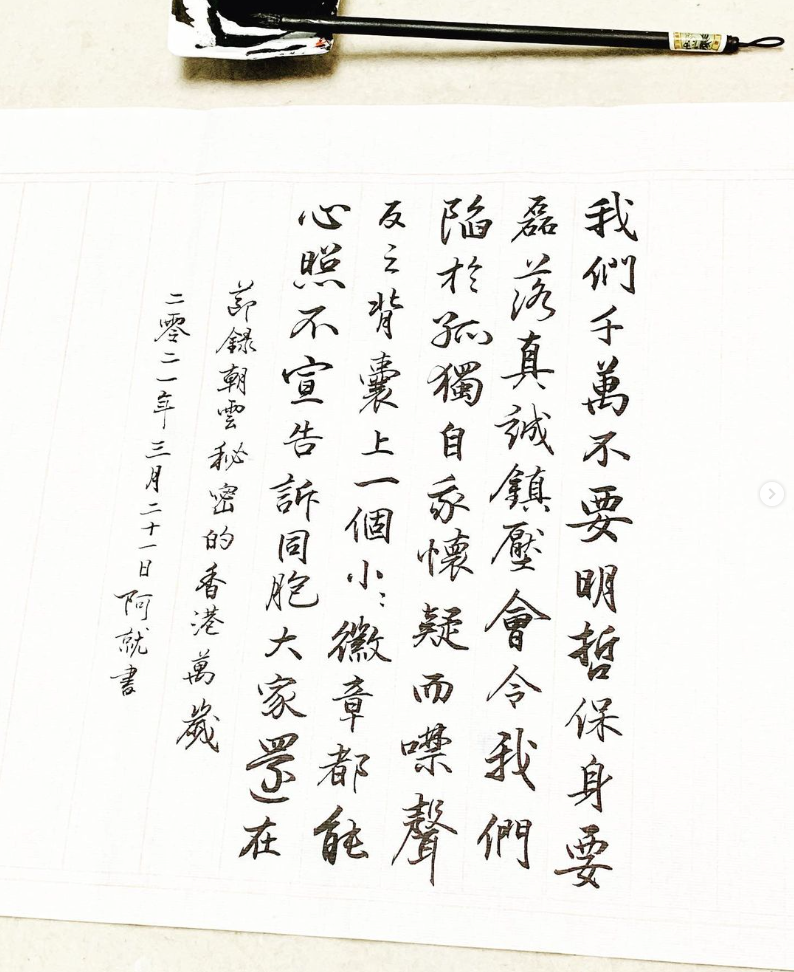 我們千萬不要明哲保身要
磊落真誠鎮壓會令我們
陷於孤獨自我懷疑而噤聲
反之背囊上一個小〻徽章都能
心照不宣告訴同胞大家還在
節錄朝雲秘密的香港萬歲
二零二一年三月二十一日阿就書